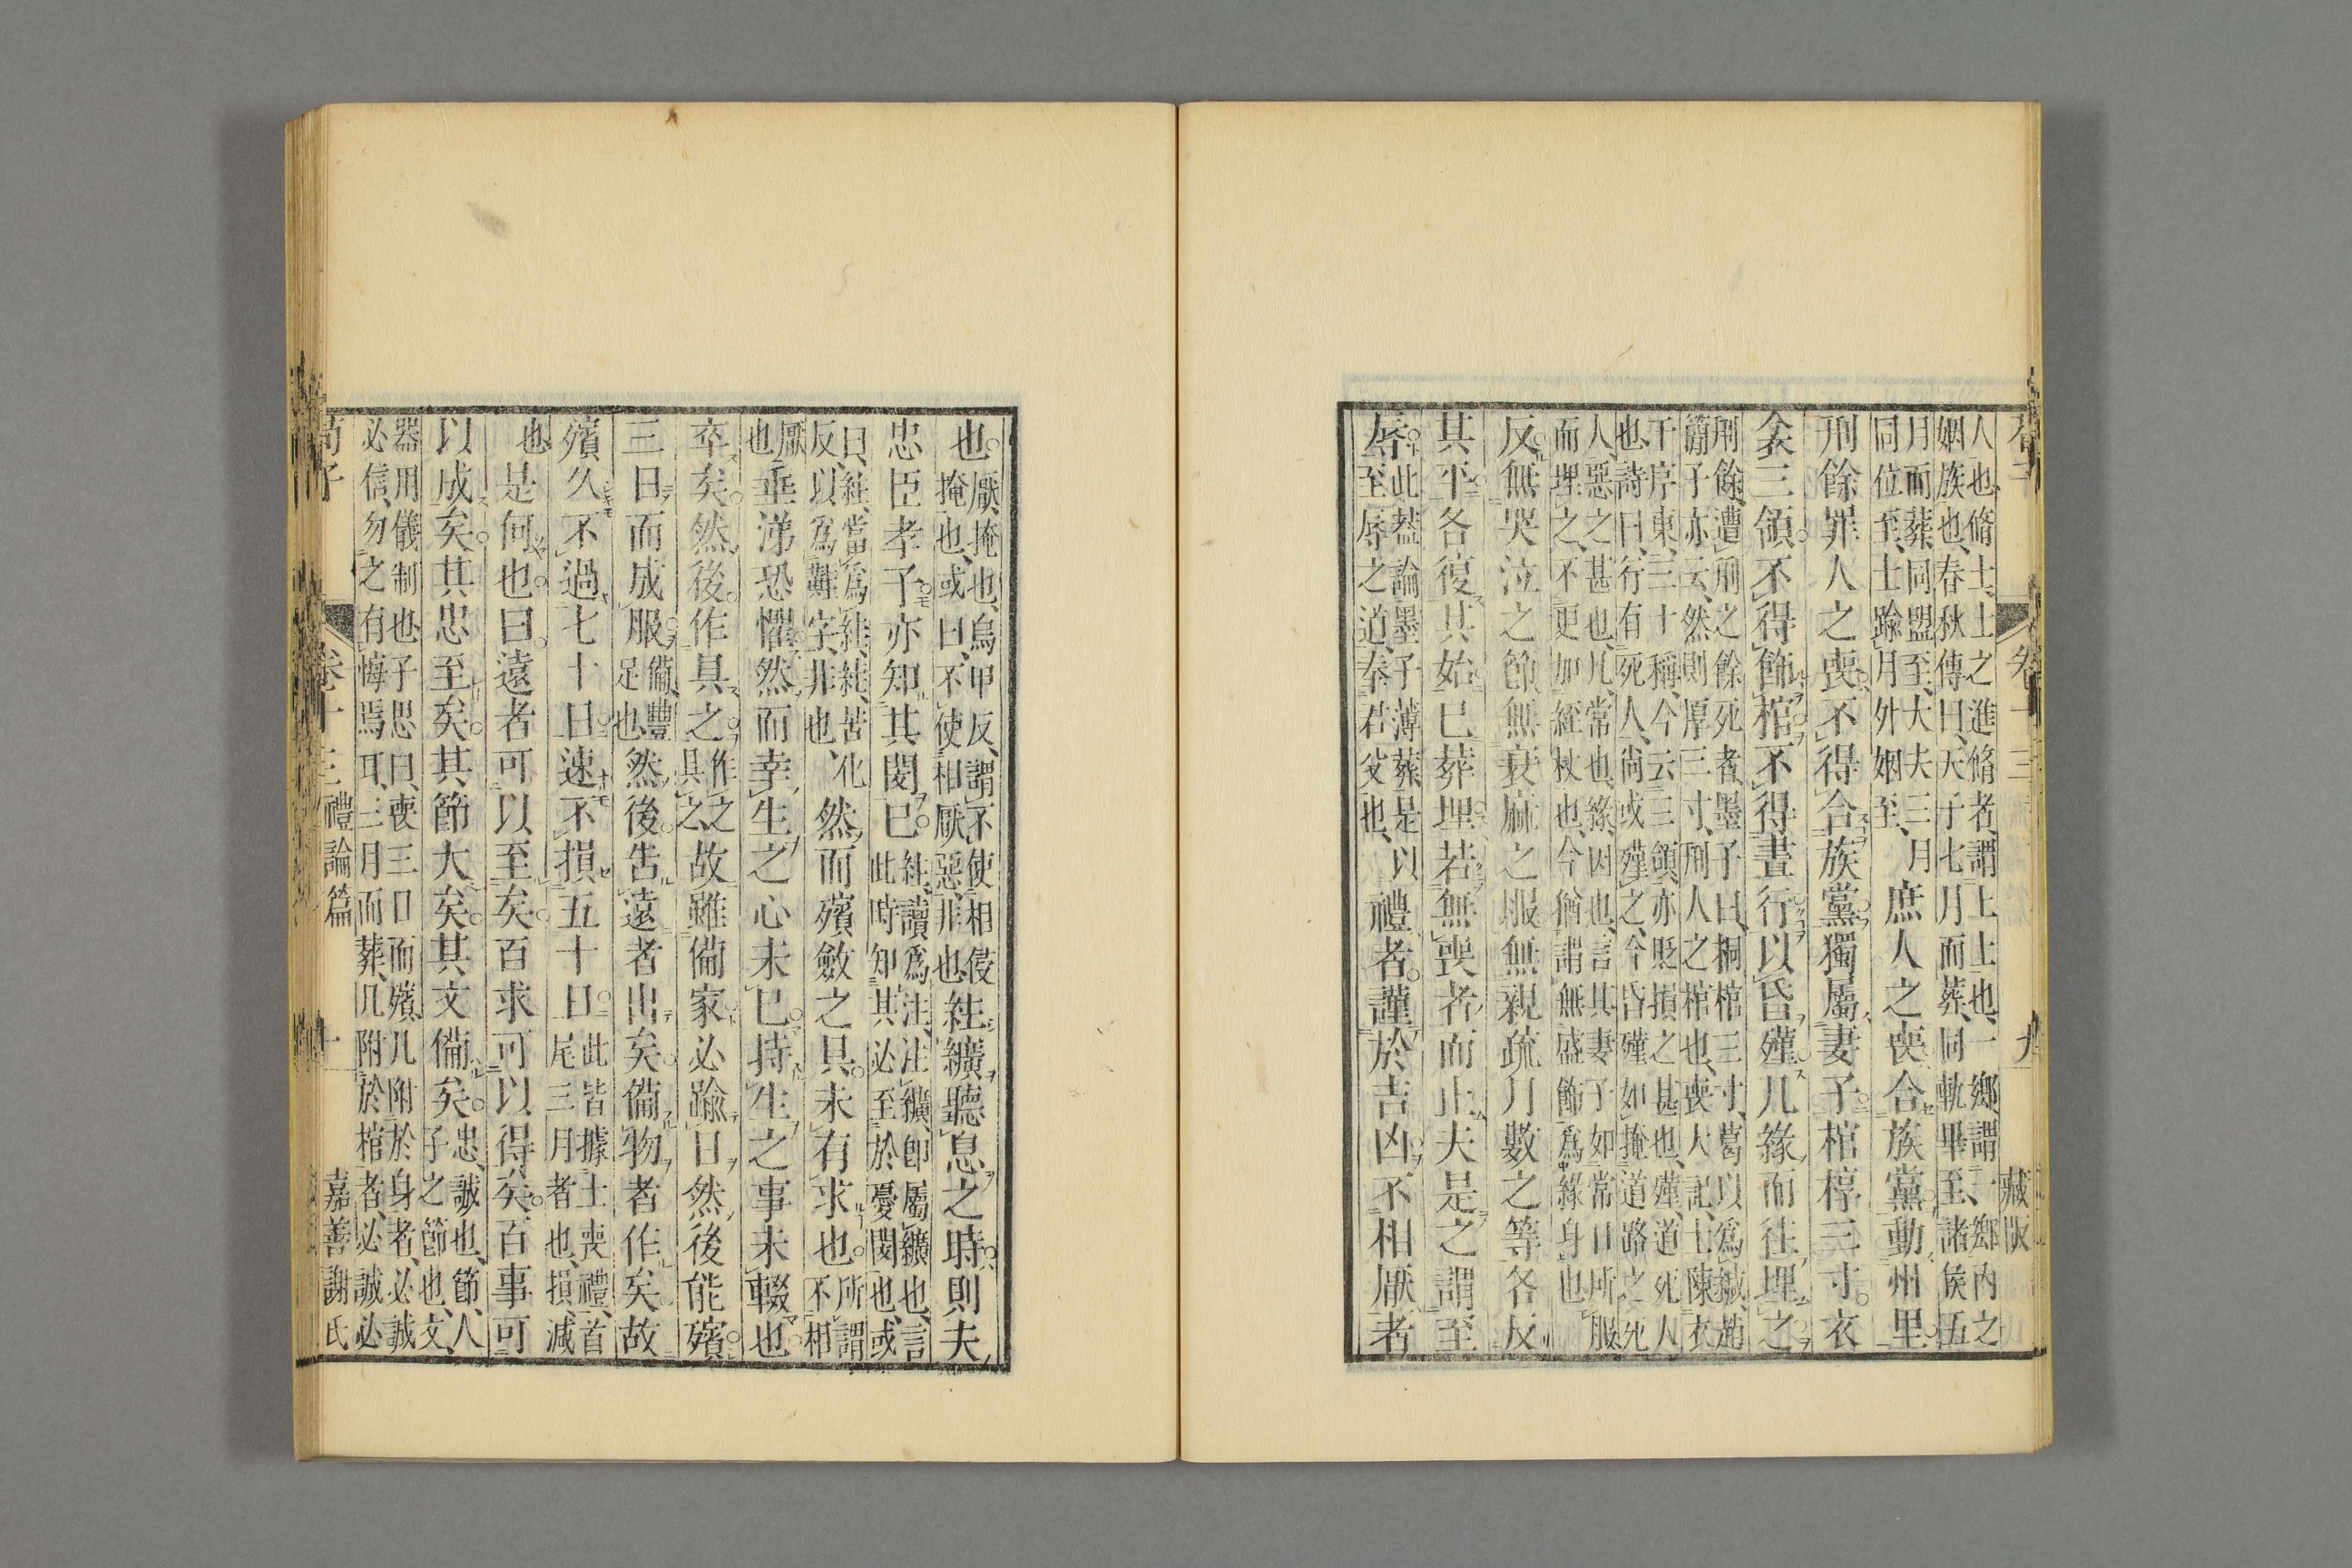 荀子 卷十三 九 藏版
人也、脩士、士之進脩者、謂上士也、一鄉、謂一鄉內之
姻族也、春秋傳曰、天子七月而葬、同軌畢至、諸侯五
月而葬、同盟至、大夫三月
同位至、士踰月、外姻至、
庶人之喪、合族黨動州里
刑餘罪人之喪、不得合族黨獨屬妻子棺椁三寸。衣
衾三領。不得飾棺。不得晝行以昏殣。凡緣而往埋之
刑餘、遭刑之餘死者、墨子曰、桐棺三寸、葛以爲緘、趙
簡子亦云、然則厚三寸、刑人之棺也、喪大記、士陳衣
于序東、三十稱、今云三領、亦貶損之甚也、殣、道死人
也、詩曰、行有死人、尚或殣之、今昏殣、如掩道路之死
人、惡之甚也、凡、常也、緣、因也、言其妻子如常日所服
而埋之、不更加絰杖也、今猶謂無盛飾爲緣身也
反。無哭泣之節無衰麻之服無親疏月數之等各反
其平各復其始已葬埋若無喪者而止夫是之謂至
辱。
此蓋論墨子薄葬、是以
至辱之道、奉君父也、
禮者。謹於吉凶不相厭者
也。
厭、掩也、烏甲反、謂不使相侵
掩也、或曰、不使相厭惡、非也、
紸纊聽息之時。則夫
忠臣孝子。亦知其閔已。
紸、讀爲注、注纊、卽屬纊也、言
此時知其必至於憂閔也、或
曰、紸、當爲絓、絓、苦化
反、以爲難字、非也、
然而殯斂之具。未有求也。
所謂
不相
厭
也
垂涕恐懼然而幸生之心未已。持生之事未輟也。
卒矣。然後。作具之。
作之
具之、
故雖備家必踰日然後能殯。
三日而成服。
備、豐
足也、
然後。告遠者出矣。備物者作矣。故
殯久不過七十日。速不損五十日。
此皆據士喪禮、首
尾三月者也、損、減
也、
是何也。曰。遠者可以至矣。百求可以得矣。百事可
以成矣。其忠至矣。其節大矣。其文備矣。
忠、誠也、節、人
子之節也、文、
器用儀制也子思曰、喪三日而殯、凡附於身者、必誠
必信、勿之有悔焉耳、三月而葬、凡附於棺者、必誠必
荀子 卷十三 禮論篇 十 嘉善謝氏